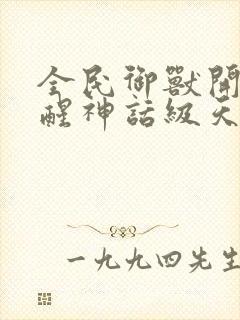 全民御獸開
醒神話級天
一九九四先生